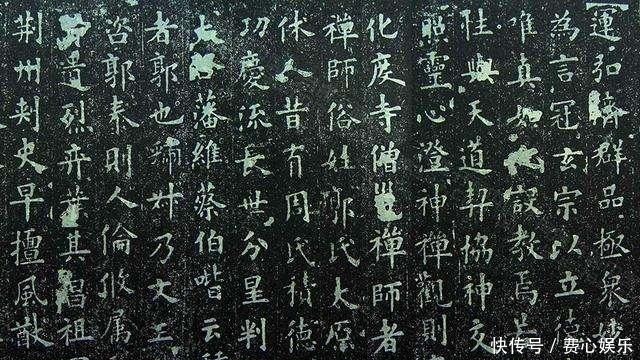 運弘濟群品極衆妙
為言冠玄宗以立德
唯真如之設教焉若
性與天道契協神交
照靈心澄神禪觀則
化度寺僧邕禪師者
禪師俗姓郭氏太原
休人昔有周氏積德
功慶流長世分星判
大啓藩維蔡伯喈云
者郭也虢叔乃文王
咨郭泰則人倫攸属
遺烈弈葉其昌祖
荆州刺史早擅風猷
快传号 / 费心娱乐